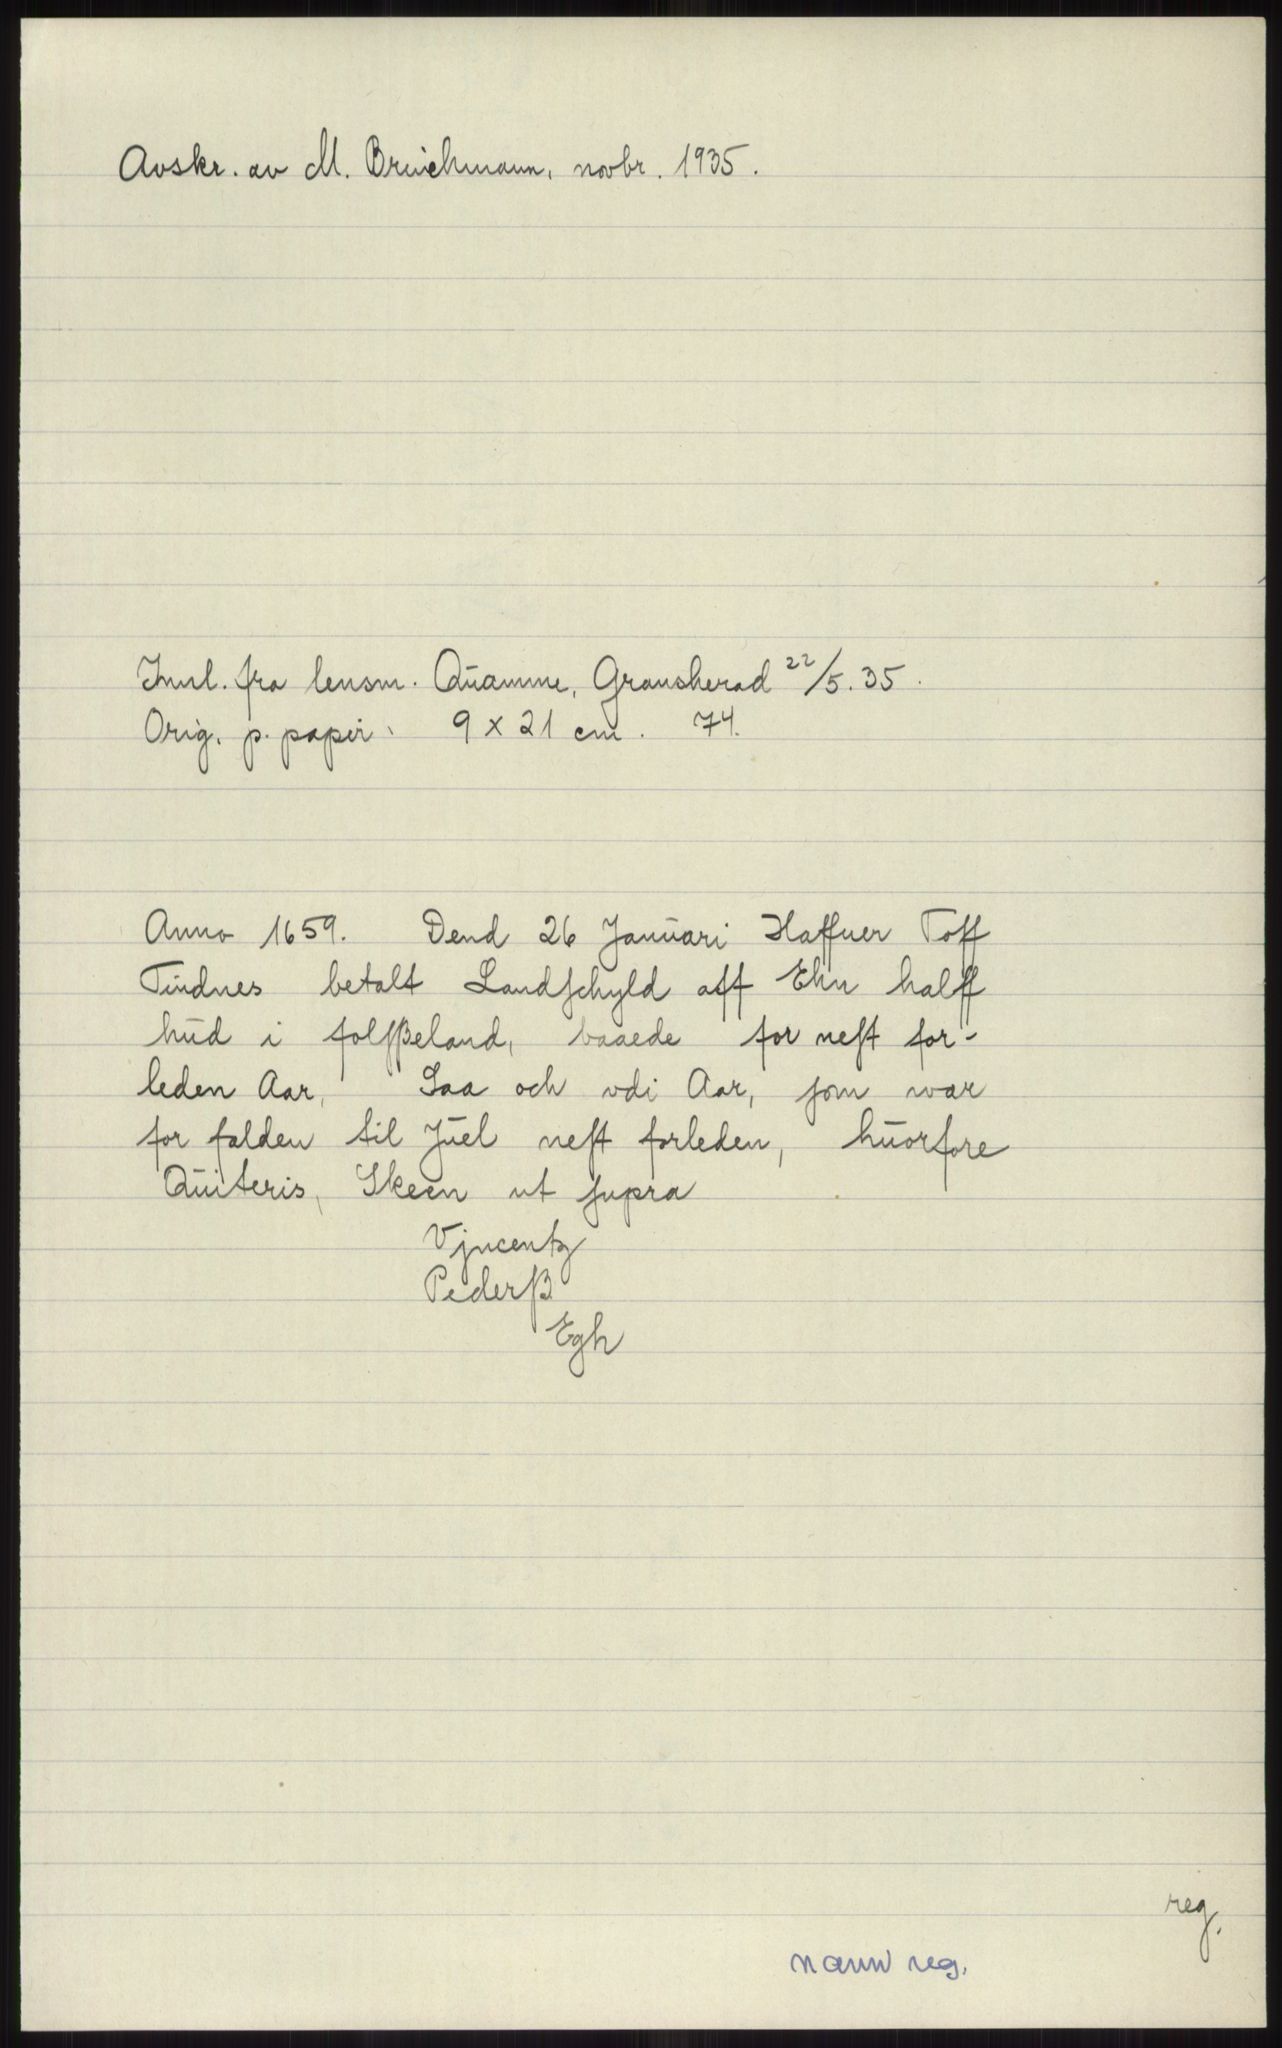 Avskr. av M. Brüichmann, novbr. 1935.
Innl. fra lensm. Qŭamme, Gransherad 22/5. 35.
Orig. p. papir. 9 x 21 cm. 74.
Anno 1659. Dend 26 Janŭari Haffuer Toff
Tindnes betalt Landſchyld aff Ehn halff
hŭd i folſßeland, baaede for neſt for-
leden Aar, Saa och vdi Aar, ſom war
for falden til Jŭel neſt forleden, hŭorfore
Qŭiteris, Skeen ut ſupra
Vjncentz
Pederſß
Egh
reg.
navn reg.